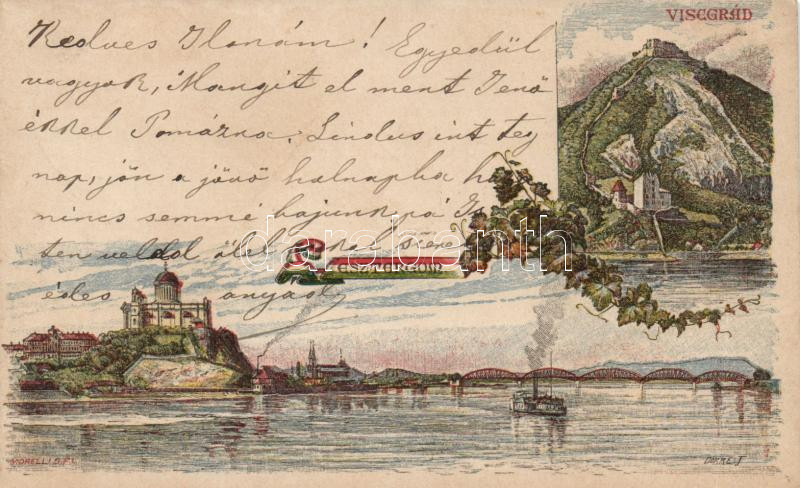 VISEGRÁD
Kedves Ilonám! Egyedül
vagyok, Mangit el ment Jenő
ékkel Pomázra. Lindus int teg
nap, jön a jövő halnapba
nincs semmé bajunk
ten veled ölel
édes anyád
ESZTERGOM
darabanth
MORELLI G.F.L.
DÖRRE T